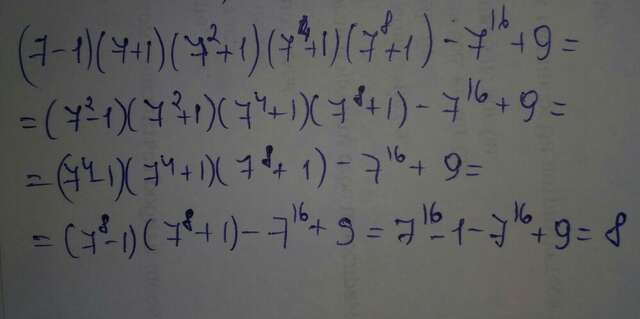 (7-1)(7+1)(7²+1)(7⁴+1)(7⁸+1)-7¹⁶+9=
=(7²-1)(7²+1)(7⁴+1)(7⁸+1)-7¹⁶+9=
=(7⁴-1)(7⁴+1)(7⁸+1)-7¹⁶+9=
=(7⁸-1)(7⁸+1)-7¹⁶+9=7¹⁶-1-7¹⁶+9=8